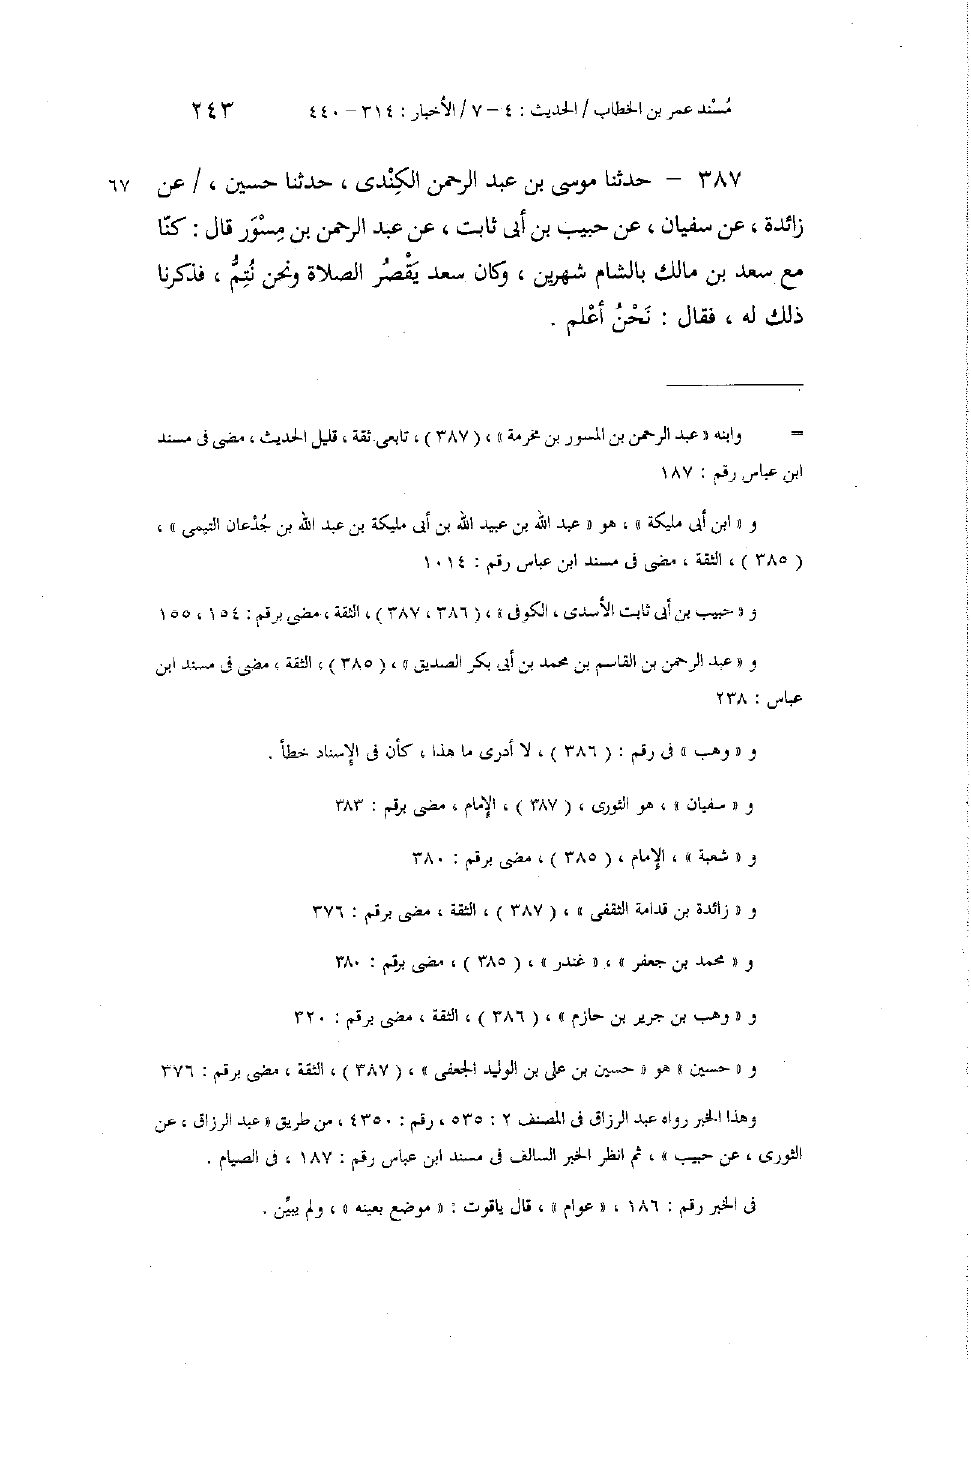 مُسْند عمر بن الخطاب / الحديث : ٤ – ٧ / الأخبار : ٣١٤ – ٤٤٠ ٢٤٣
٣٨٧ – حدثنا موسى بن عبد الرحمن الكِنْدى ، حدثنا حسين ، / عن ٦٧
زائدة ، عن سفيان ، عن حبيب بن أبى ثابت ، عن عبد الرحمن بن مِسْوَر قال : كنّا
مع سعد بن مالك بالشام شهرين ، وكان سعد يَقْصُر الصلاة ونحن نُتِمُّ ، فذكرنا
ذلك له ، فقال : نَحْنُ أعْلم .
= وابنه « عبد الرحمن بن المسور بن مخرمة » ، ( ٣٨٧ ) ، تابعى ثقة ، قليل الحديث ، مضى فى مسند
ابن عباس رقم : ١٨٧
و « ابن أبى مليكة » ، هو « عبد الله بن عبيد الله بن أبى مليكة بن عبد الله بن جُدْعان التيمى » ،
( ٣٨٥ ) ، الثقة ، مضى فى مسند ابن عباس رقم : ١٠١٤
و « حبيب بن أبى ثابت الأسدى ، الكوفى » ، ( ٣٨٦ ، ٣٨٧ ) ، الثقة ، مضى برقم : ١٥٤ ، ١٥٥
و « عبد الرحمن بن القاسم بن محمد بن أبى بكر الصديق » ، ( ٣٨٥ ) ، الثقة ، مضى فى مسند ابن
عباس : ٢٣٨
و « وهب » فى رقم : ( ٣٨٦ ) ، لا أدرى ما هذا ، كأن فى الإسناد خطأ .
و « سفيان » ، هو الثورى ، ( ٣٨٧ ) ، الإمام ، مضى برقم : ٣٨٣
و « شعبة » ، الإمام ، ( ٣٨٥ ) ، مضى برقم : ٣٨٠
و « زائدة بن قدامة الثقفى » ، ( ٣٨٧ ) ، الثقة ، مضى برقم : ٣٧٦
و « محمد بن جعفر » ، « غندر » ، ( ٣٨٥ ) ، مضى برقم : ٣٨٠
و « وهب بن جرير بن حازم » ، ( ٣٨٦ ) ، الثقة ، مضى برقم : ٣٢٠
و « حسين » هو « حسين بن على بن الوليد الجعفى » ، ( ٣٨٧ ) ، الثقة ، مضى برقم : ٣٧٦
وهذا الخبر رواه عبد الرزاق فى المصنف ٢ : ٥٣٥ ، رقم : ٤٣٥٠ ، من طريق « عبد الرزاق ، عن
الثورى ، عن حبيب » ، ثم انظر الخبر السالف فى مسند ابن عباس رقم : ١٨٧ ، فى الصيام .
فى الخبر رقم : ١٨٦ ، « عوام » ، قال ياقوت : « موضع بعينه » ، ولم يبيِّن .